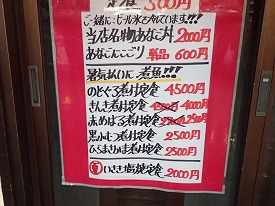 定食 300円
ご一緒に：ビール氷と冷えています!!!
当店名物あなご丼 2000円
あなごにこごり 単品 600円
暑気払いに 煮魚!!!
のどぐろ煮付定食 4500円
きんき煮付定食 4000円
赤めばる煮付定食 2500円
黒むつ煮付定食 2500円
ひらまさかま煮付定食 2500円
いさき塩焼定食 2000円